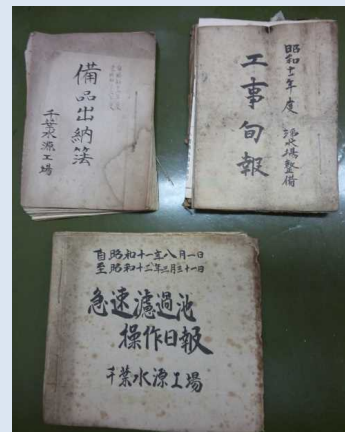 備品出納簿
千葉水源工場
昭和十一年度
浄水場整備
工事旬報
自昭和十一年八月一日
至昭和十二年三月三十一日
急速濾過池
操作日報
千葉水源工場